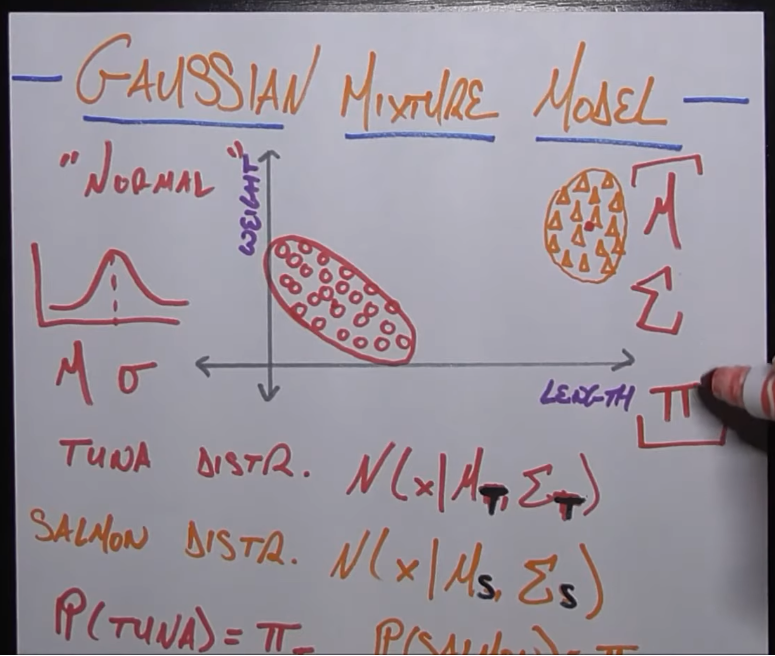 GAUSSIAN MIXTURE MODEL
"NORMAL"
WEIGHT
μ
Σ
π
μ σ
LENGTH
TUNA DISTR. N(x|μT, ΣT)
SALMON DISTR. N(x|μS, ΣS)
P(TUNA) = π P(SALMON) = π